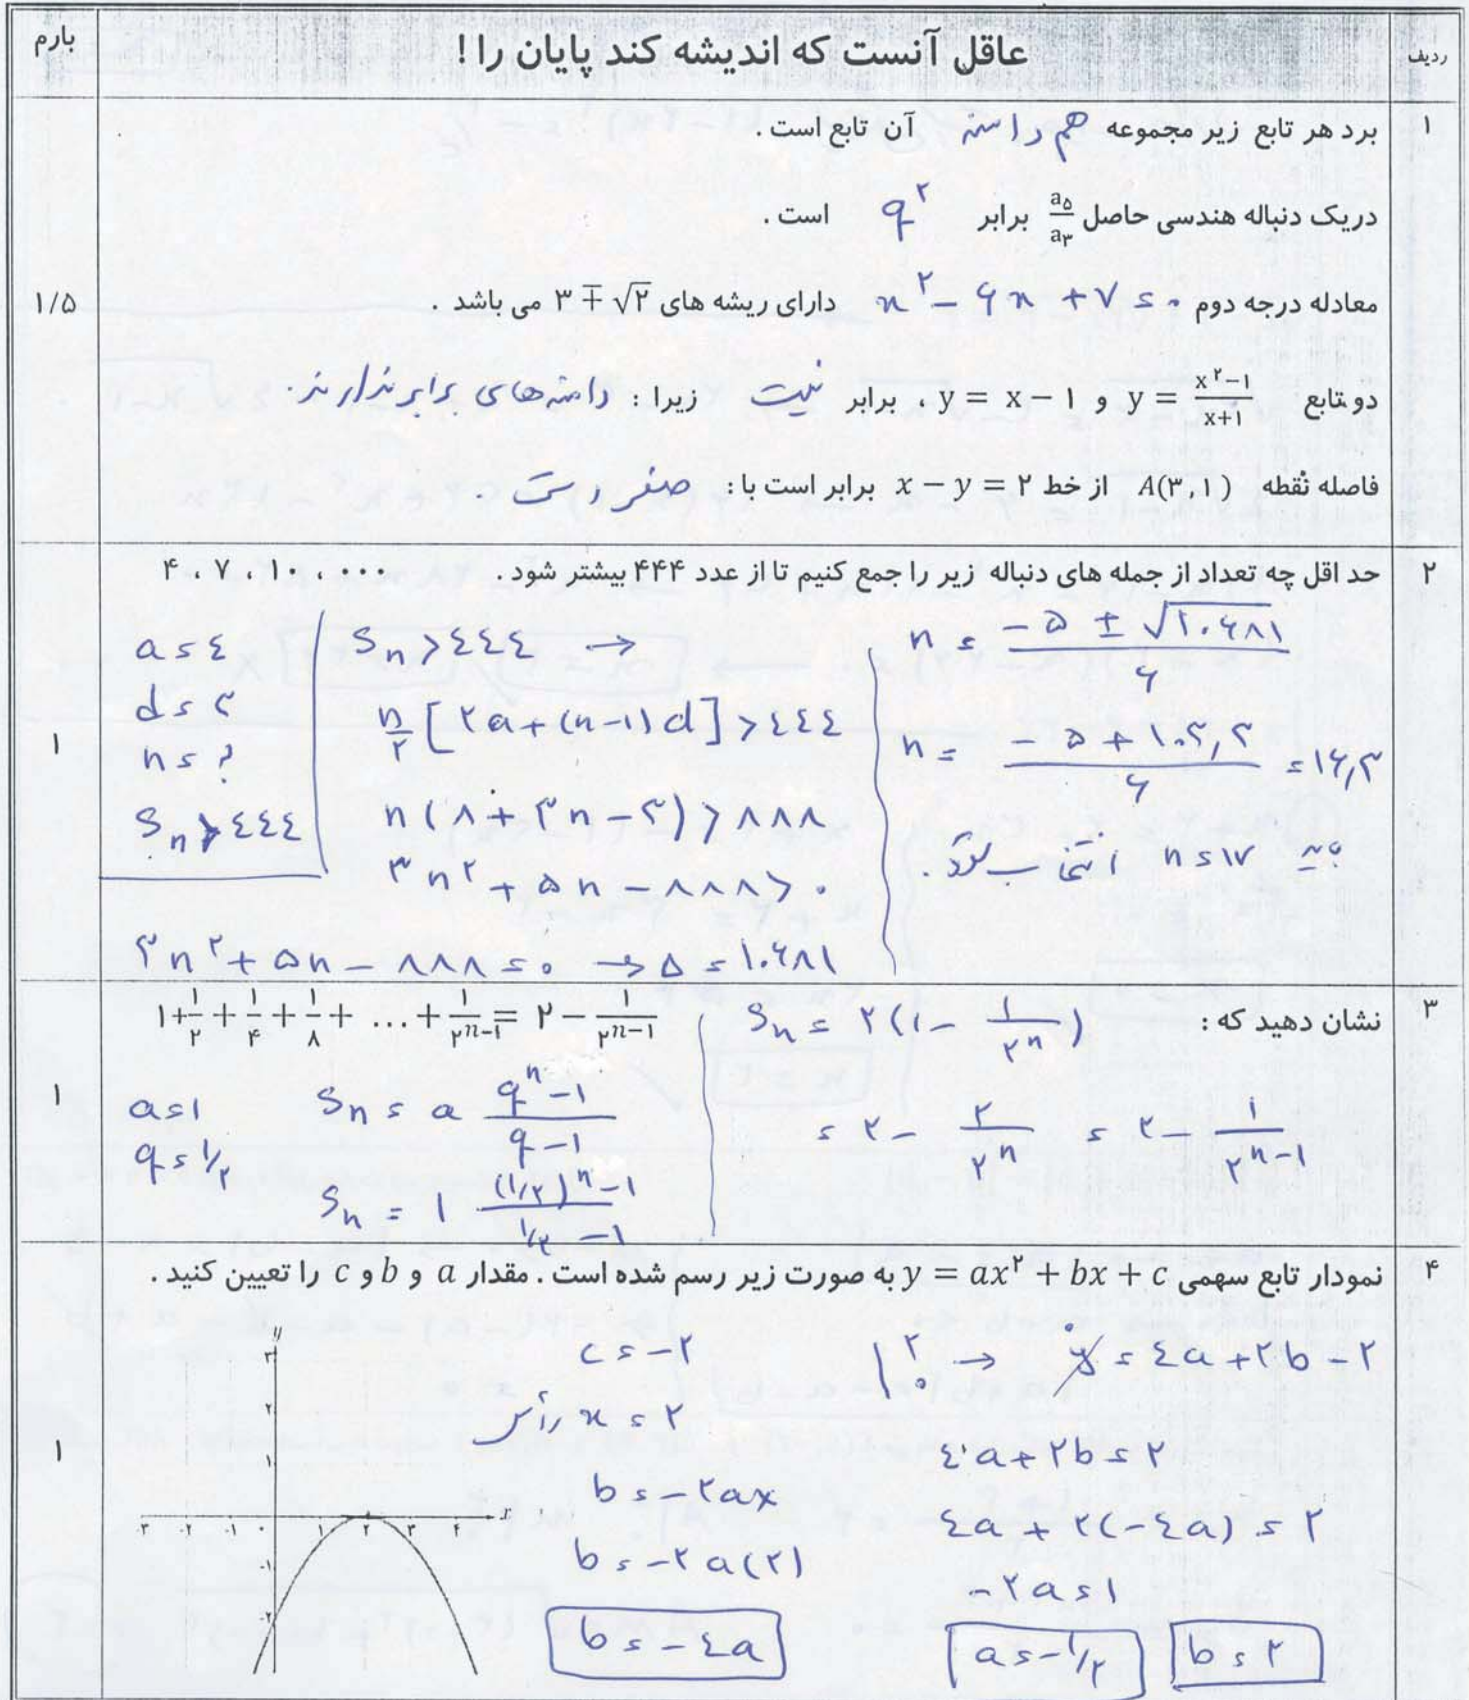 ردیف
عاقل آنست که اندیشه کند پایان را !
بارم
۱
برد هر تابع زیر مجموعه هم دامنه آن تابع است .
دریک دنباله هندسی حاصل a۵/a۳ برابر q^۲ است .
معادله درجه دوم x^۲ - ۶x + ۷ = ۰ دارای ریشه های ۳ ∓ √۲ می باشد .
۱/۵
دو تابع y = (x^۲−۱)/(x+۱) و y = x − ۱ ، برابر نیست زیرا : دامنه‌های برابر ندارند .
فاصله نقطه A(۳,۱) از خط x − y = ۲ برابر است با : صفر است .
۲
حد اقل چه تعداد از جمله های دنباله زیر را جمع کنیم تا از عدد ۴۴۴ بیشتر شود . ۴ ، ۷ ، ۱۰ ، ۰۰۰
۱
a = ٤
d = ۳
n = ?
Sn > ٤٤٤
Sn > ٤٤٤ →
n/۲ [۲a + (n-۱)d] > ٤٤٤
n(۸ + ۳n - ۳) > ۸۸۸
۳n^۲ + ۵n - ۸۸۸ > ۰
۳n^۲ + ۵n - ۸۸۸ = ۰ → Δ = ۱۰۶۸۱
n = (-۵ ± √۱۰۶۸۱)/۶
n = (-۵ + ۱۰۳,۳)/۶ = ۱۶,۳
n = ۱۷ انتخاب
۳
نشان دهید که :
۱+ ۱/۲ + ۱/۴ + ۱/۸ + … + ۱/۲^(n−۱) = ۲ − ۱/۲^(n−۱)
۱
a = ۱
q = ۱/۲
Sn = a (q^n - ۱)/(q - ۱)
Sn = ۱ ((۱/۲)^n - ۱)/(۱/۲ - ۱)
Sn = ۲(۱ - ۱/۲^n)
= ۲ - ۲/۲^n = ۲ - ۱/۲^(n-۱)
۴
نمودار تابع سهمی y = ax^۲ + bx + c به صورت زیر رسم شده است . مقدار a و b و c را تعیین کنید .
۱
y
۳
۲
۱
-۳ -۲ -۱ ۰ ۱ ۲ ۳ ۴ x
-۱
-۲
c = -۲
رأس x = ۲
b = -۲ax
b = -۲a(۲)
b = -٤a
|۲ ۰ → y = ٤a + ۲b - ۲
٤a + ۲b = ۲
٤a + ۲(-٤a) = ۲
-۲a = ۱
a = -۱/۲
b = ۲